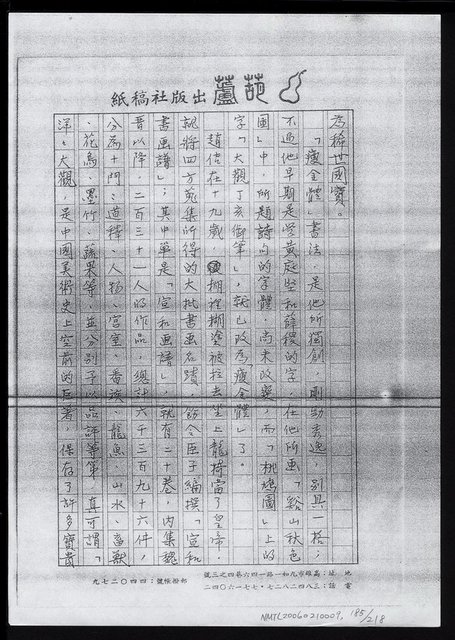 葫蘆出版社稿紙
為稀世國寶。
「瘦金體」書法,是他所獨創,剛勁秀逸,別具一格,
不過他早期是受黃庭堅和薛稷的字,在他所画「谿山秋色
圖」中,所題詩句的字體,尚未改變,而「桃鳩圖」上的
字「大觀丁亥御筆」,就已改為瘦金體了。
趙佶在十九歲,糊裡糊塗被拉去坐上龍椅當了皇帝,
就將四方蒐集所得的大批書画名蹟,飭令臣子編撰「宣和
書画譜」;其中單是「宣和画譜」,就有二十卷,內集魏
晉以降,二百三十一人的作品,總計六千三百九十六件,
分為十門:道釋、人物、宮室、番族、龍魚、山水、畜獸
、花鳥、墨竹、蔬果等,並分別予以品評等第,真可謂「
洋洋大觀,是中國美術史上空前的巨著,保存了許多寶貴
地址:高雄市九如一路一四六巷四之三號
電話:三八四二八二七・七七一六〇四二
郵撥帳號:四四〇二七九
NMTL20060210009, 185/218